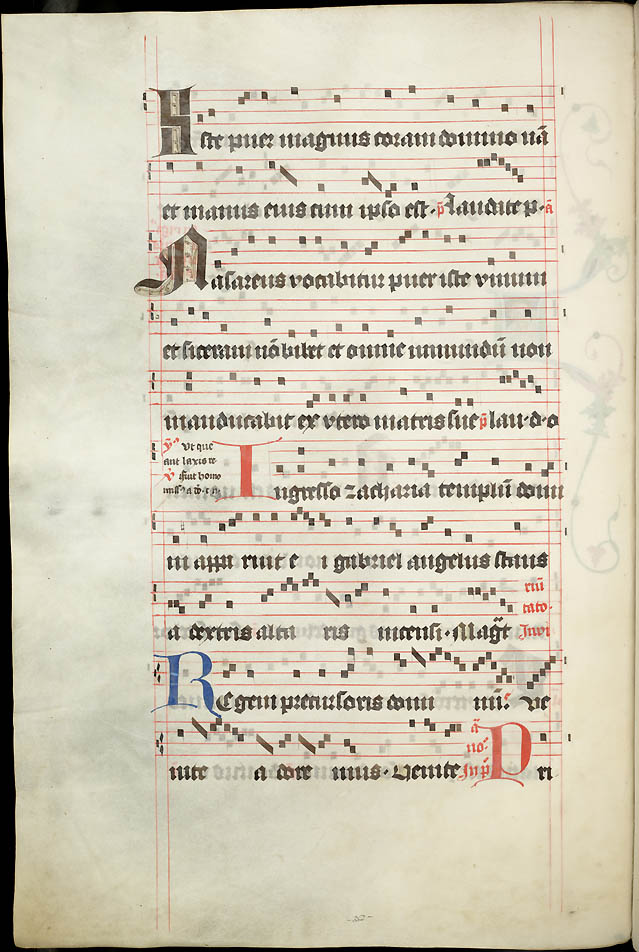 Iste puer magnus coram domino nā
et manus eius cum ipso est. p̄ Laudate p. ā
Nasareus vocabitur puer iste vinum
et siceram nō bibet et omne immundū non
manducabit ex vtero matris sue p̄ lau d o
Vt que
ant laxis re
fuit homo
Ingresso zacharia templū domi
ni appa ruit e i gabriel angelus stans
riū
a dextris alta ris incensi. Magt̄ tato.
Invi
REgem precursoris domi num. ve
ā
nite a dore mus. Venite no. In p̄ Pri